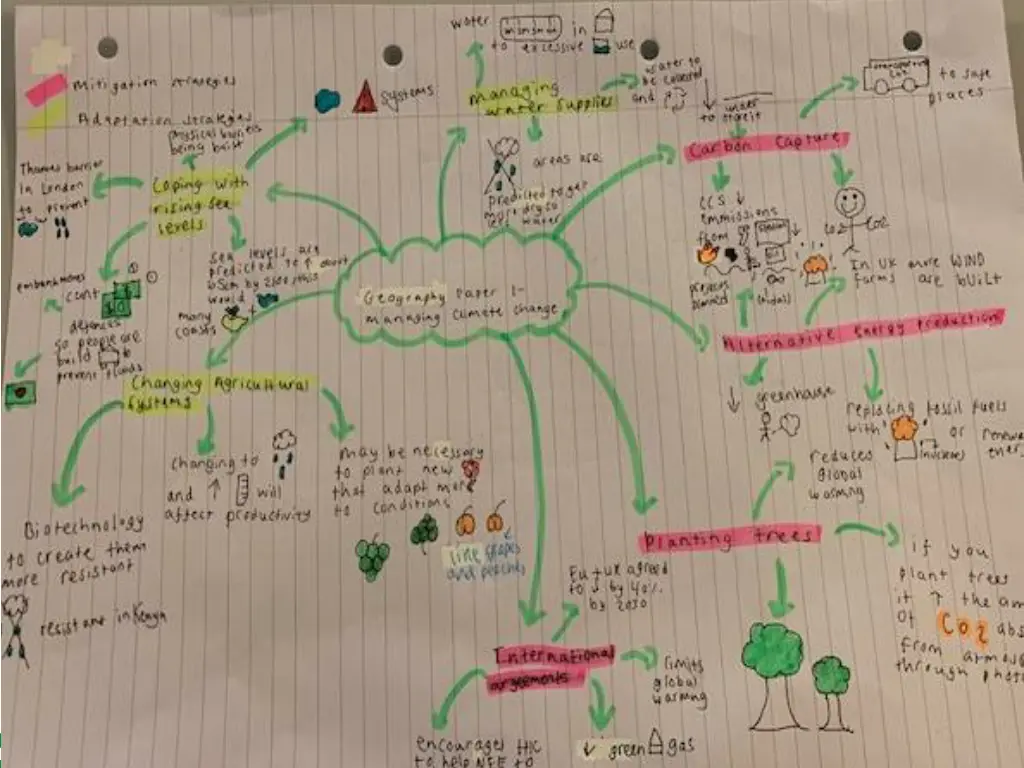 Mitigation strategies
Adaptation strategies
Geography Paper 1-
managing climate change
managing
water supplies
water
in
to excessive
use
water to
be collected
and
areas are
predicted to get
more dry so
less water
Coping with
rising sea
levels
physical barriers
being built
systems
Thames barrier
in London
to prevent
embankments
cont
defences
so people are
build
to
prevent floods
sea levels are
predicted to ↑ about
65cm by 2100 this
would
many
coasts
Changing Agricultural
systems
Biotechnology
to create them
more resistant
resistant in Kenya
changing to
and ↑
will
affect productivity
may be necessary
to plant new
that adapt more
to conditions
like grapes
and peaches
Carbon Capture
↓ under
to store it
to safe
places
CCS ↓
emmissions
from
Co2
Co2
Alternative Energy Production
In UK more WIND
farms are built
↓ greenhouse
replacing fossil fuels
with
or
(nuclear)
Planting trees
reduces
global
warming
if you
plant trees
it ↑ the
of CO2
from
through
International
argeements
EU + UK agreed
to ↓ by 40%
by 2030
limits
global
warming
↓ green
gas
encourages HIC
to help NEE to